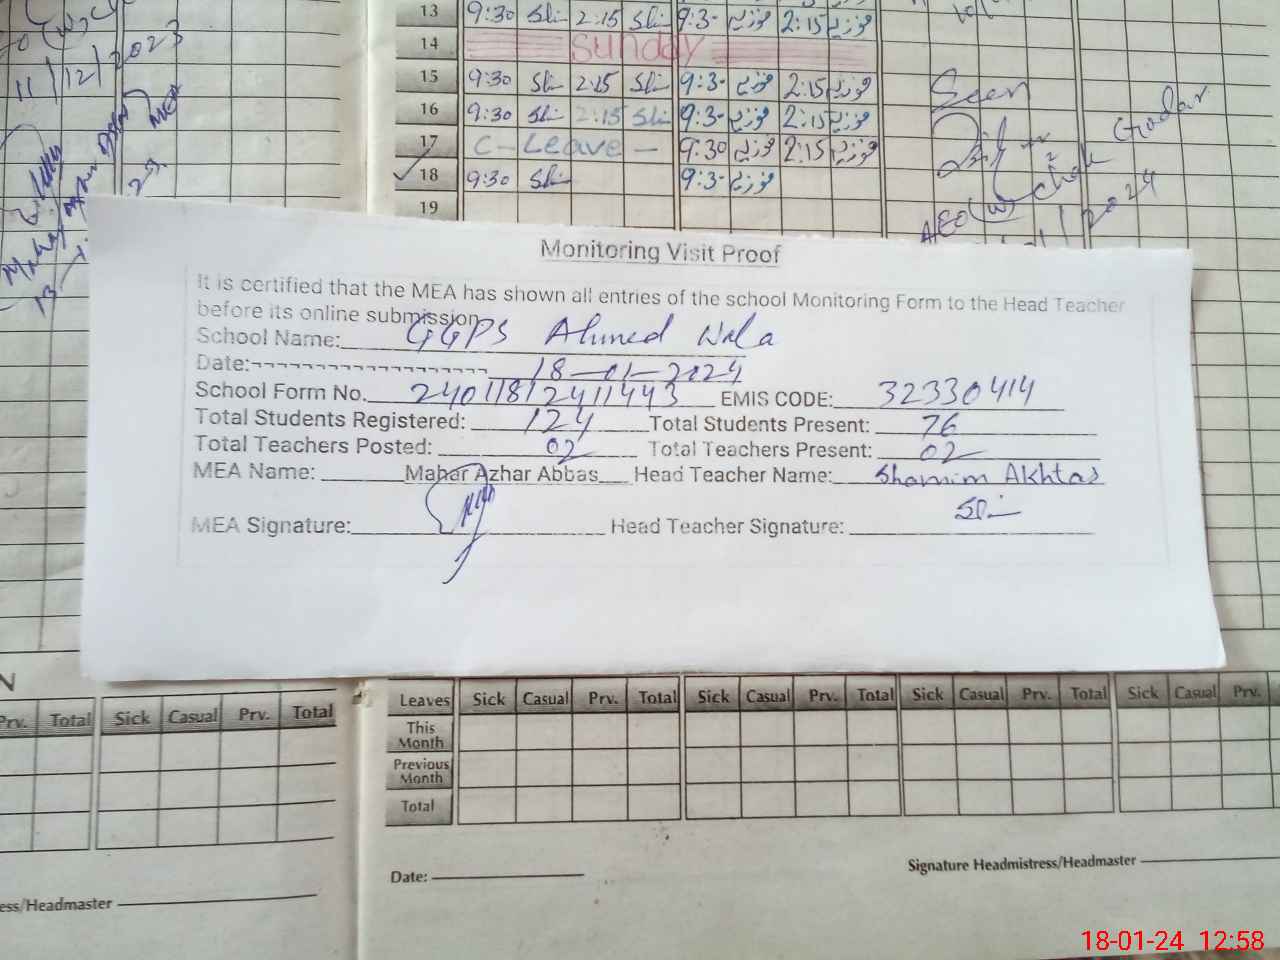 11/12/2023
MEA
13 9:30 Sh 2:15 Sh 9:3- فوزیہ 2:15 فوزیہ
14 Sunday
15 9:30 Sh 2:15 Sh 9:3- فوزیہ 2:15 فوزیہ
16 9:30 Sh 2:15 Sh 9:3- فوزیہ 2:15 فوزیہ
17 C-Leave- 9:30 فوزیہ 2:15 فوزیہ
18 9:30 Sh 9:3- فوزیہ
19
Seen
AEO (w) Chak Gadar
2024
Monitoring Visit Proof
It is certified that the MEA has shown all entries of the school Monitoring Form to the Head Teacher
before its online submission
School Name: GGPS Ahmed Wala
Date: 18-01-2024
School Form No. 24011812411443 EMIS CODE: 32330414
Total Students Registered: 124 Total Students Present: 76
Total Teachers Posted: 02 Total Teachers Present: 02
MEA Name: Mahar Azhar Abbas Head Teacher Name: Shamim Akhtar
MEA Signature: Head Teacher Signature: Sh
N
Prv. Total Sick Casual Prv. Total
Leaves Sick Casual Prv. Total Sick Casual Prv. Total Sick Casual Prv. Total Sick Casual Prv.
This Month
Previous Month
Total
Date:
Signature Headmistress/Headmaster
ess/Headmaster
18-01-24 12:58